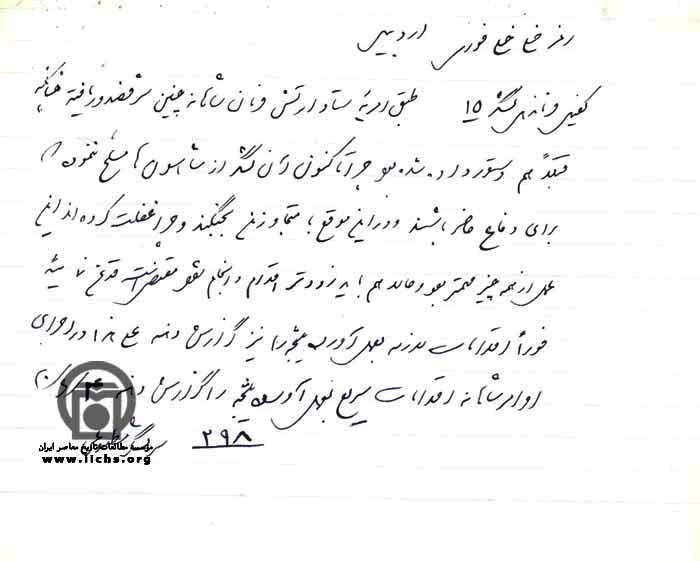 رمز خیلی خیلی فوری اردبیل
کفیل فرماندهی لشگر ۱۵ طبق امریه ستاد ارتش فرمان شاهانه چنین شرفصدور یافته چنانکه
قبلاً هم دستور داده شده بود چرا تاکنون آن لشگر از شاهسون‌ها مسلح ننموده
برای دفاع حاضر باشند و در این موقع با متجاوزین بجنگند و چرا غفلت کرده‌اند این
عمل از همه چیز مهمتر بود و حالا هم باید زودتر اقدام و انجام شود مقتضی است قدغن نمایید
فوراً اقدامات لازمه بعمل آورده نتیجه را نیز گزارش دهند در اجرای
اوامر شاهانه اقدامات سریع بعمل آورده نتیجه را گزارش دهند
۲۹۸ سرلشگر
موسسه مطالعات تاریخ معاصر ایران
www.iichs.org